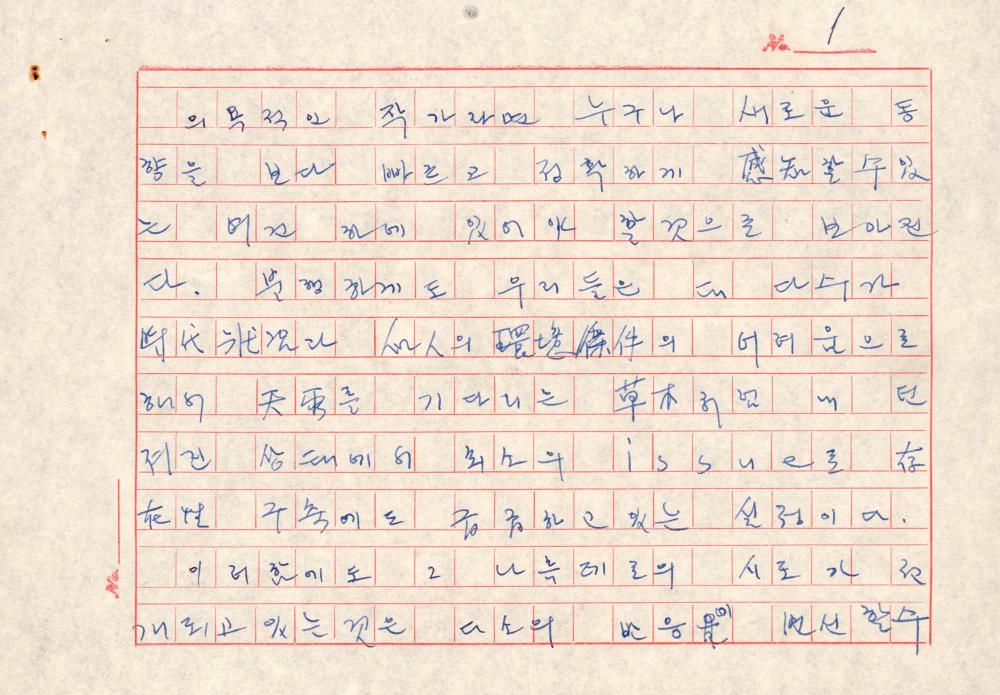 No. 1
의욕적인 작가라면 누구나 새로운 동
향을 보다 빠르고 정확하게 感知할수있
는 여건 하에 있어야 할것으로 보아진
다. 불행하게도 우리들은 대다수가
時代狀況과 個人의 環境條件의 어려움으로
해서 天水를 기다리는 草木처럼 내던
져진 상태에서 최소의 issue로 存
在性 구축에도 급급하고 있는 실정이다.
이러함에도 그 나름데로의 시도가 전
개되고 있는것은 다소의 반응이 번선할수
No.